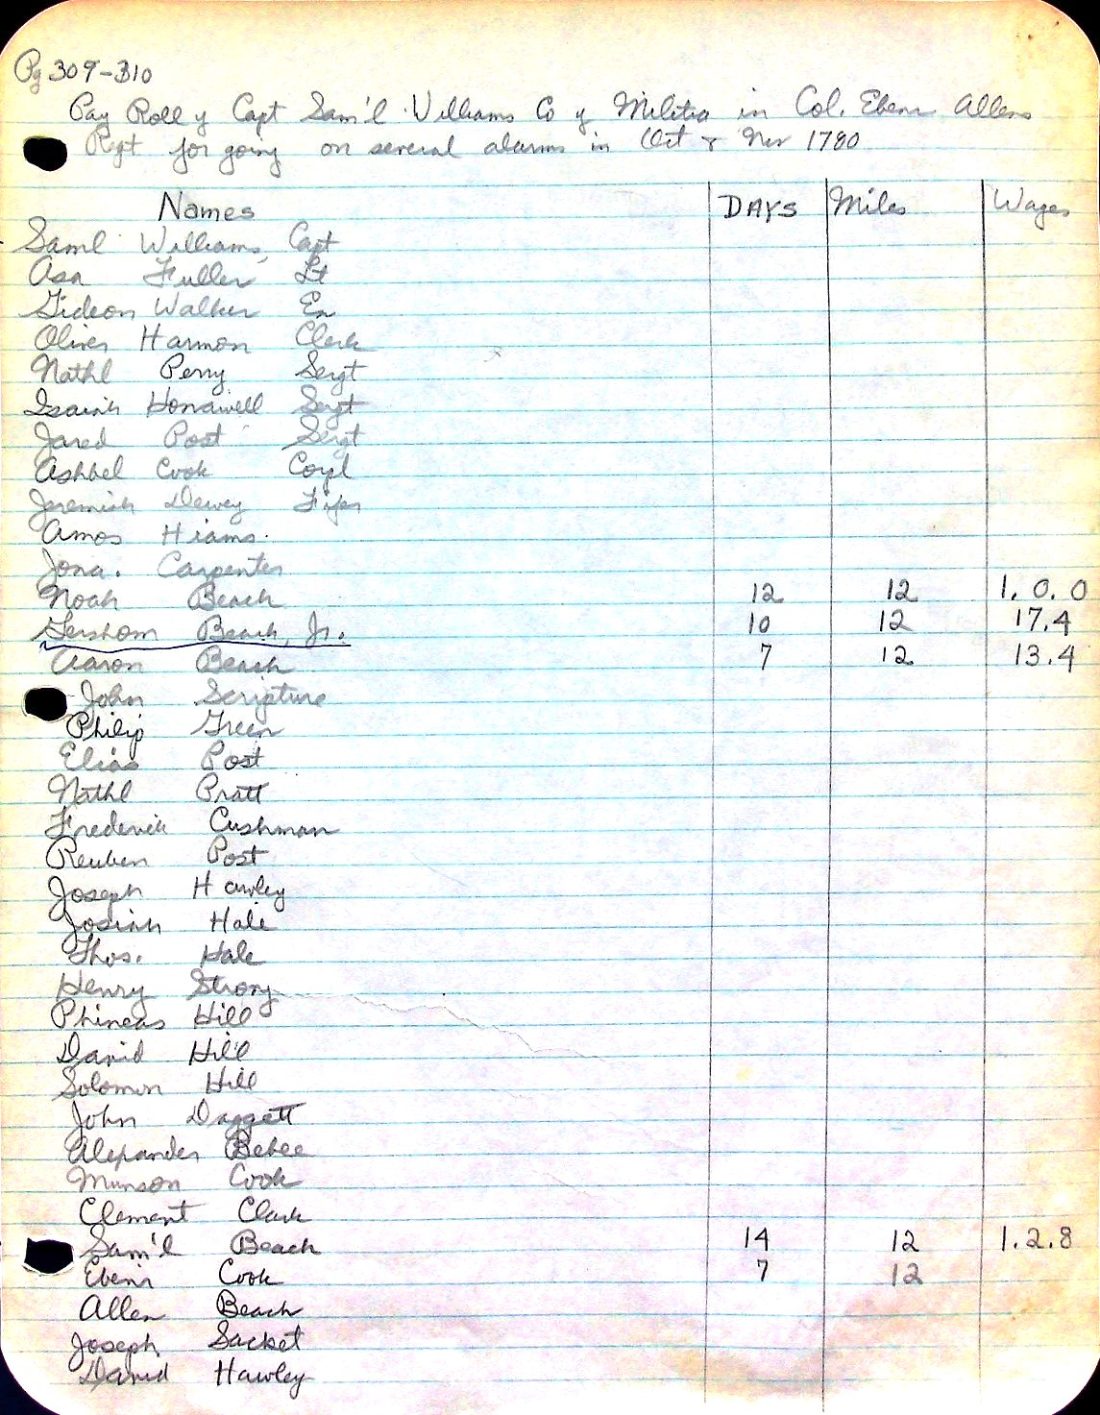 Pg 309-310
Pay Roll of Capt Sam'l Williams Co of Militia in Col. Ebenr Allens
Regt for going on several alarms in Oct & Nov 1780
Names DAYS Miles Wages
Saml Williams, Capt
Asa Fuller Lt
Gideon Walker En
Oliver Harmon Clerk
Nathl Perry Sergt
Isaiah Honawell Sergt
Jared Post Sergt
Ashbel Cook Corpl
Jeremiah Dewey Fifer
Amos Hiams.
Jona. Carpenter
Noah Beach 12 12 1.0.0
Gershom Beach, Jr. 10 12 17.4
Aaron Beach 7 12 13.4
John Scripture
Philip Green
Elias Post
Nathl Pratt
Frederick Cushman
Reuben Post
Joseph Hawley
Josiah Hale
Thos. Hale
Henry Strong
Phineas Hill
David Hill
Solomon Hill
John Daggett
Alexander Bebee
Munson Cook
Clement Clark
Sam'l Beach 14 12 1.2.8
Ebenr Cook 7 12
Allen Beach
Joseph Sacket
David Hawley